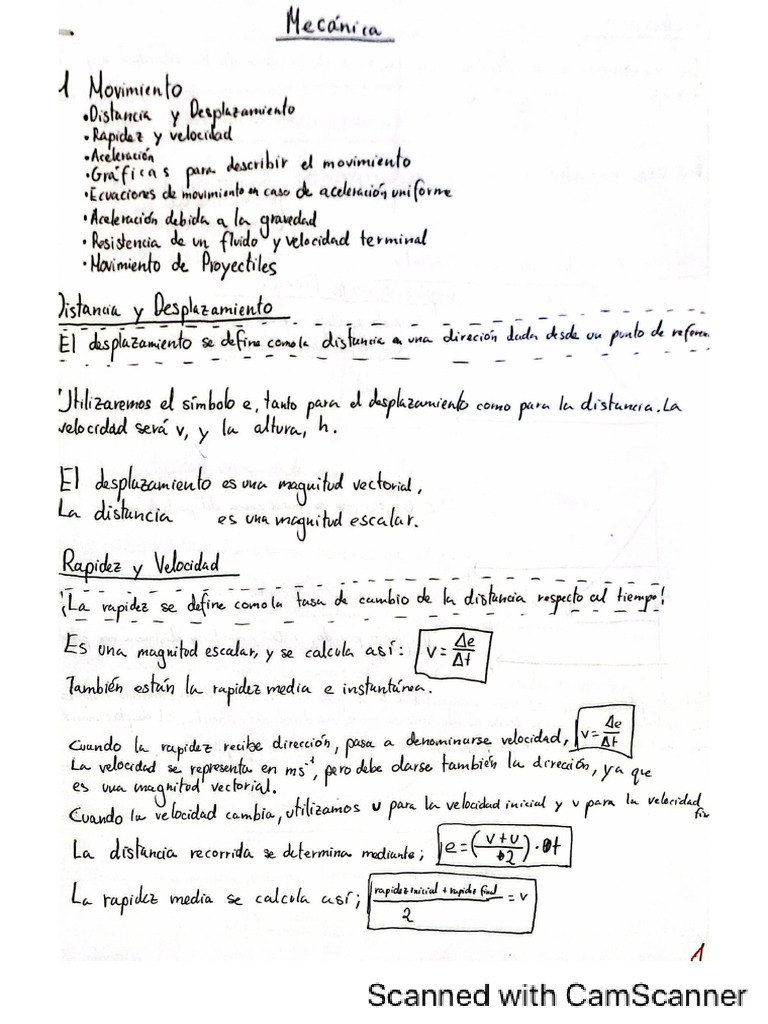 Mecánica
1 Movimiento
•Distancia y Desplazamiento
•Rapidez y velocidad
•Aceleración
•Gráficas para describir el movimiento
•Ecuaciones de movimiento en caso de aceleración uniforme
•Aceleración debida a la gravedad
•Resistencia de un fluido y velocidad terminal
•Movimiento de Proyectiles
Distancia y Desplazamiento
El desplazamiento se define como la distancia en una dirección dada desde un punto de referen
Utilizaremos el símbolo e, tanto para el desplazamiento como para la distancia. La
velocidad será v, y la altura, h.
El desplazamiento es una magnitud vectorial,
La distancia es una magnitud escalar.
Rapidez y Velocidad
¡La rapidez se define como la tasa de cambio de la distancia respecto al tiempo!
Es una magnitud escalar, y se calcula así: v = Δe/Δt
También están la rapidez media e instantánea.
Cuando la rapidez recibe dirección, pasa a denominarse velocidad, v = Δe/Δt
La velocidad se representa en ms⁻¹, pero debe darse también la dirección, ya que
es una magnitud vectorial.
Cuando la velocidad cambia, utilizamos u para la velocidad inicial y v para la velocidad
fin
La distancia recorrida se determina mediante; e = (v+u/2) · t
La rapidez media se calcula así; rapidez inicial + rapidez final/2 = v
1
Scanned with CamScanner